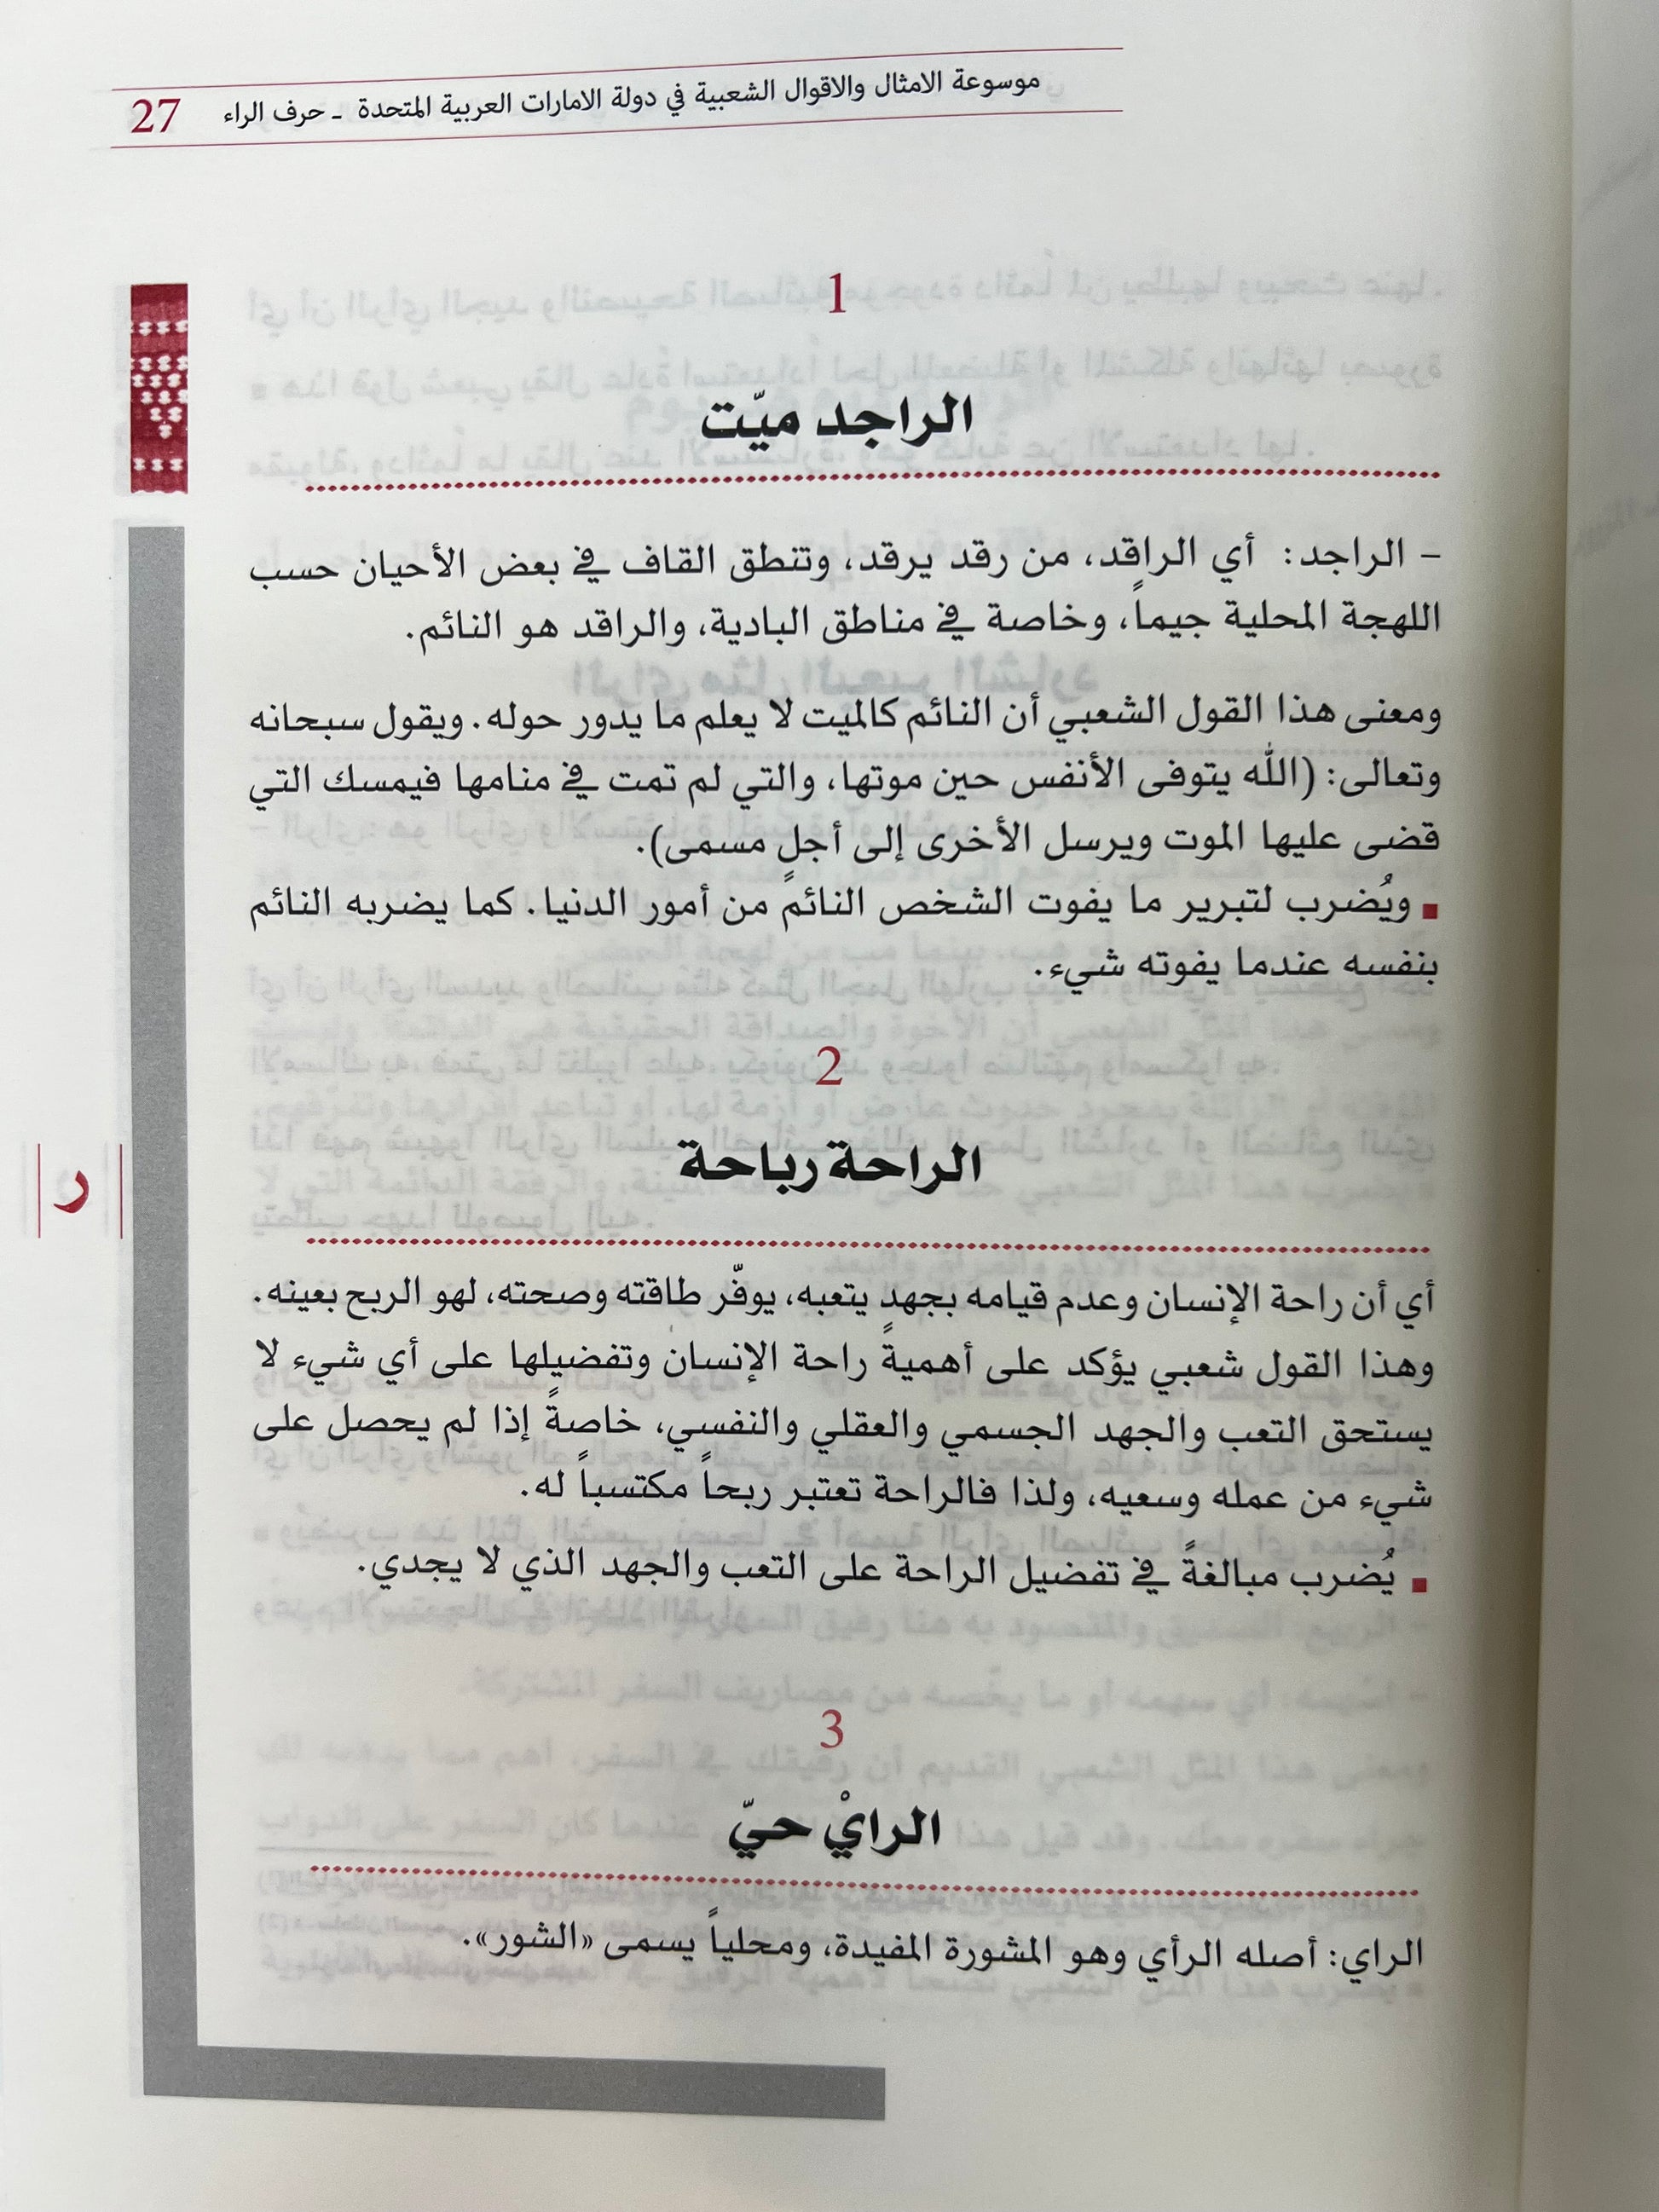 موسوعة الامثال والاقوال الشعبية في دولة الامارات العربية المتحدة - حرف الراء 27
1
الراجد ميّت
– الراجد: أي الراقد، من رقد يرقد، وتنطق القاف في بعض الأحيان حسب
اللهجة المحلية جيماً، وخاصة في مناطق البادية، والراقد هو النائم.
ومعنى هذا القول الشعبي أن النائم كالميت لا يعلم ما يدور حوله. ويقول سبحانه
وتعالى: (الله يتوفى الأنفس حين موتها، والتي لم تمت في منامها فيمسك التي
قضى عليها الموت ويرسل الأخرى إلى أجلٍ مسمى).
▪ ويُضرب لتبرير ما يفوت الشخص النائم من أمور الدنيا. كما يضربه النائم
بنفسه عندما يفوته شيء.
2
الراحة رباحة
ر
أي أن راحة الإنسان وعدم قيامه بجهدٍ يتعبه، يوفّر طاقته وصحته، لهو الربح بعينه.
وهذا القول شعبي يؤكد على أهمية راحة الإنسان وتفضيلها على أي شيء لا
يستحق التعب والجهد الجسمي والعقلي والنفسي، خاصةً إذا لم يحصل على
شيء من عمله وسعيه، ولذا فالراحة تعتبر ربحاً مكتسباً له.
▪ يُضرب مبالغةً في تفضيل الراحة على التعب والجهد الذي لا يجدي.
3
الرايْ حيّ
الراي: أصله الرأي وهو المشورة المفيدة، ومحلياً يسمى «الشور».